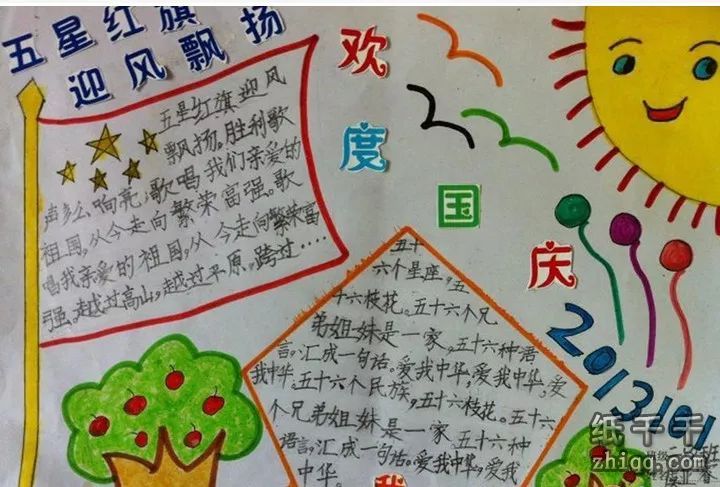 五星红旗
迎风飘扬
五星红旗迎风
飘扬。胜利歌
声多么响亮,歌唱我们亲爱的
祖国,从今走向繁荣富强。歌
唱我亲爱的祖国,从今走向繁荣富
强。越过高山,越过平原,跨过……
欢
度
国
庆
五十
六个星座,五
十六枝花。五十六个兄
弟姐妹是一家,五十六种语
言,汇成一句话。爱我中华,爱我中华,爱
我中华,五十六个民族,五十六枝花。五十六
个兄弟姐妹是一家,五十六种
语言,汇成一句话。爱我中华,爱我
中华。
我
2013101
纸千千
zhiqq.com